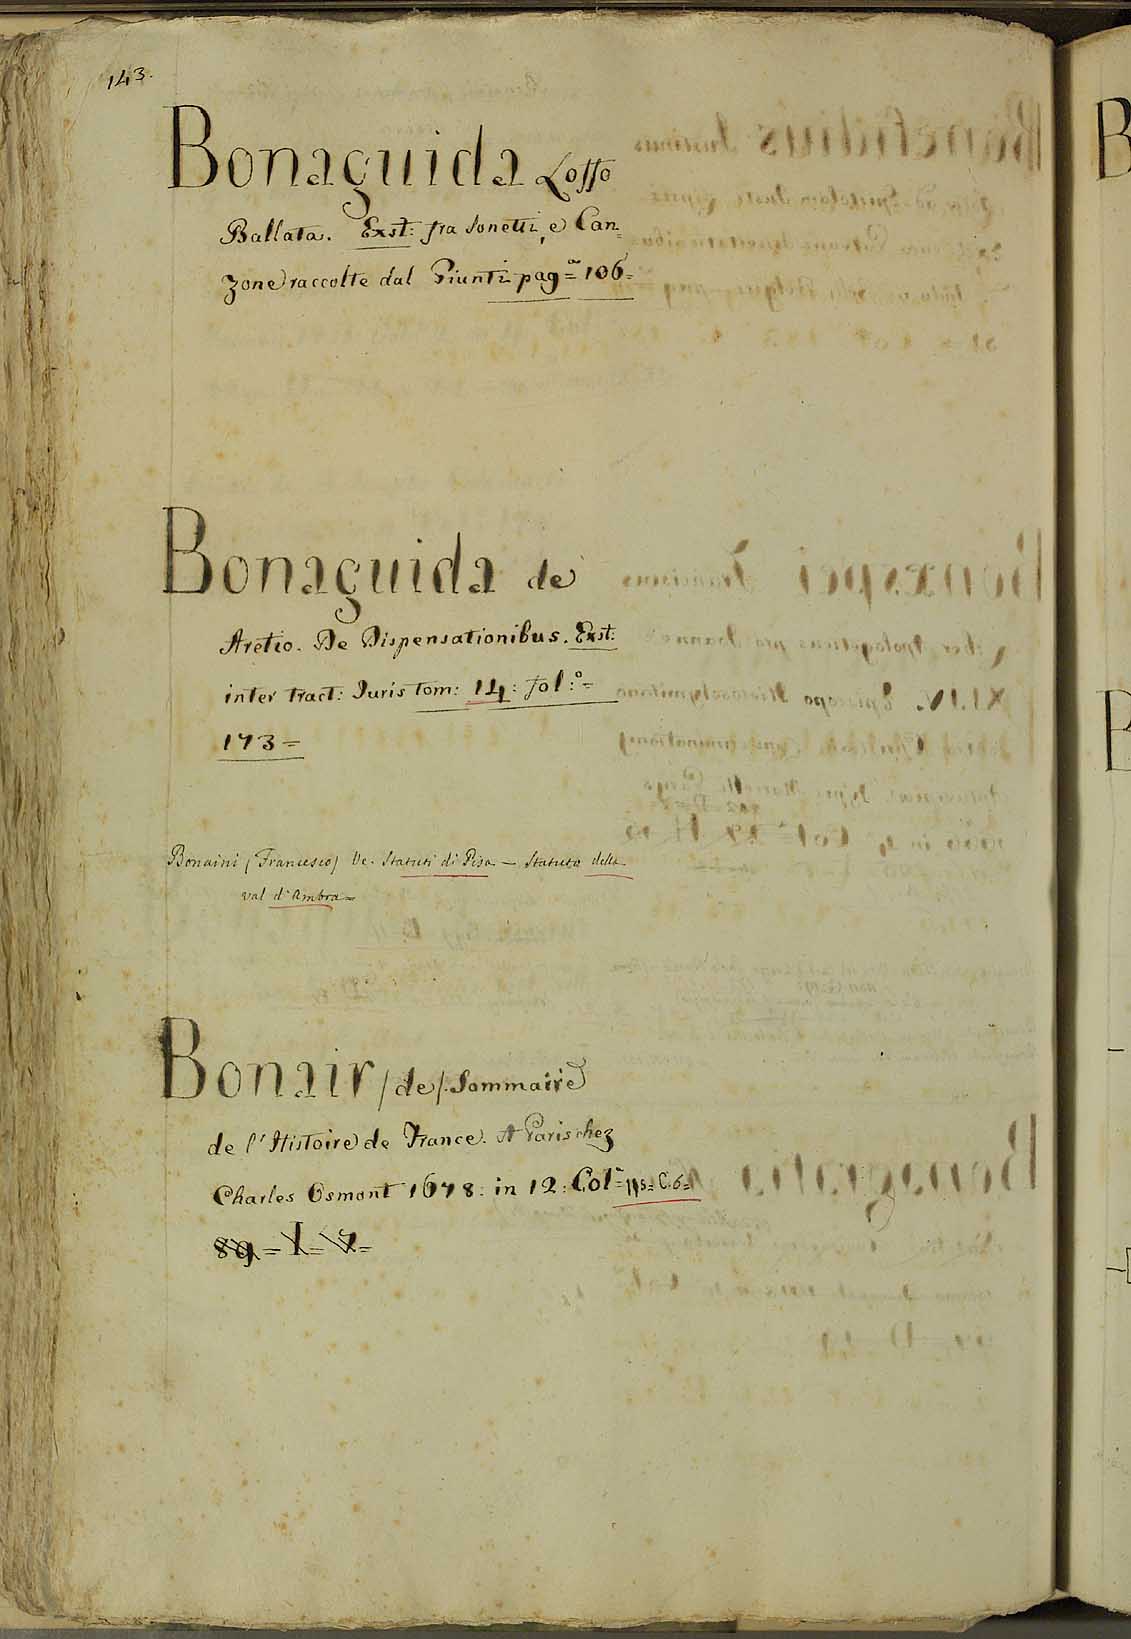 143.
Bonaguida Loffo
Ballata. Exst: fra Sonetti, e Can=
zone raccolte dal Giunti pag.ª = 106 =
Bonaguida de
Aretio. De Dispensationibus. Exst:
inter tract: Juris tom: 14: fol:º =
173 =
Bonaini (Francesco) Statuti di Pisa — Statuto della
val d'Ambra =
Bonair /de/. Sommaire
de l'Histoire de France. A Paris chez
Charles Osmont 1678: in 12: Col.ª = C. 6 =
89 = I = 7 =